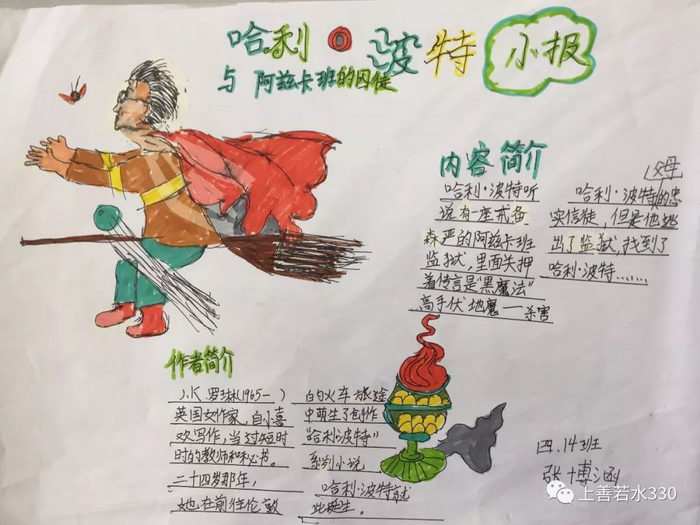 哈利·波特 小报
与 阿兹卡班的囚徒
内容简介
哈利·波特听
说有座戒备
森严的阿兹卡班
监狱，里面关押
着传言是"黑魔法"
高手伏地魔一杀害
父母
哈利·波特的忠
实信徒，但是他逃
出了监狱，找到了
哈利·波特……
作者简介
J.K 罗琳(1965一)
英国女作家，自小喜
欢写作，当过短时
时的教师和秘书。
二十四岁那年，
她在前往伦敦
的火车旅途
中萌生了创作
"哈利波特"
系列小说，
哈利·波特就
此诞生。
四.14班
张博涵
上善若水330